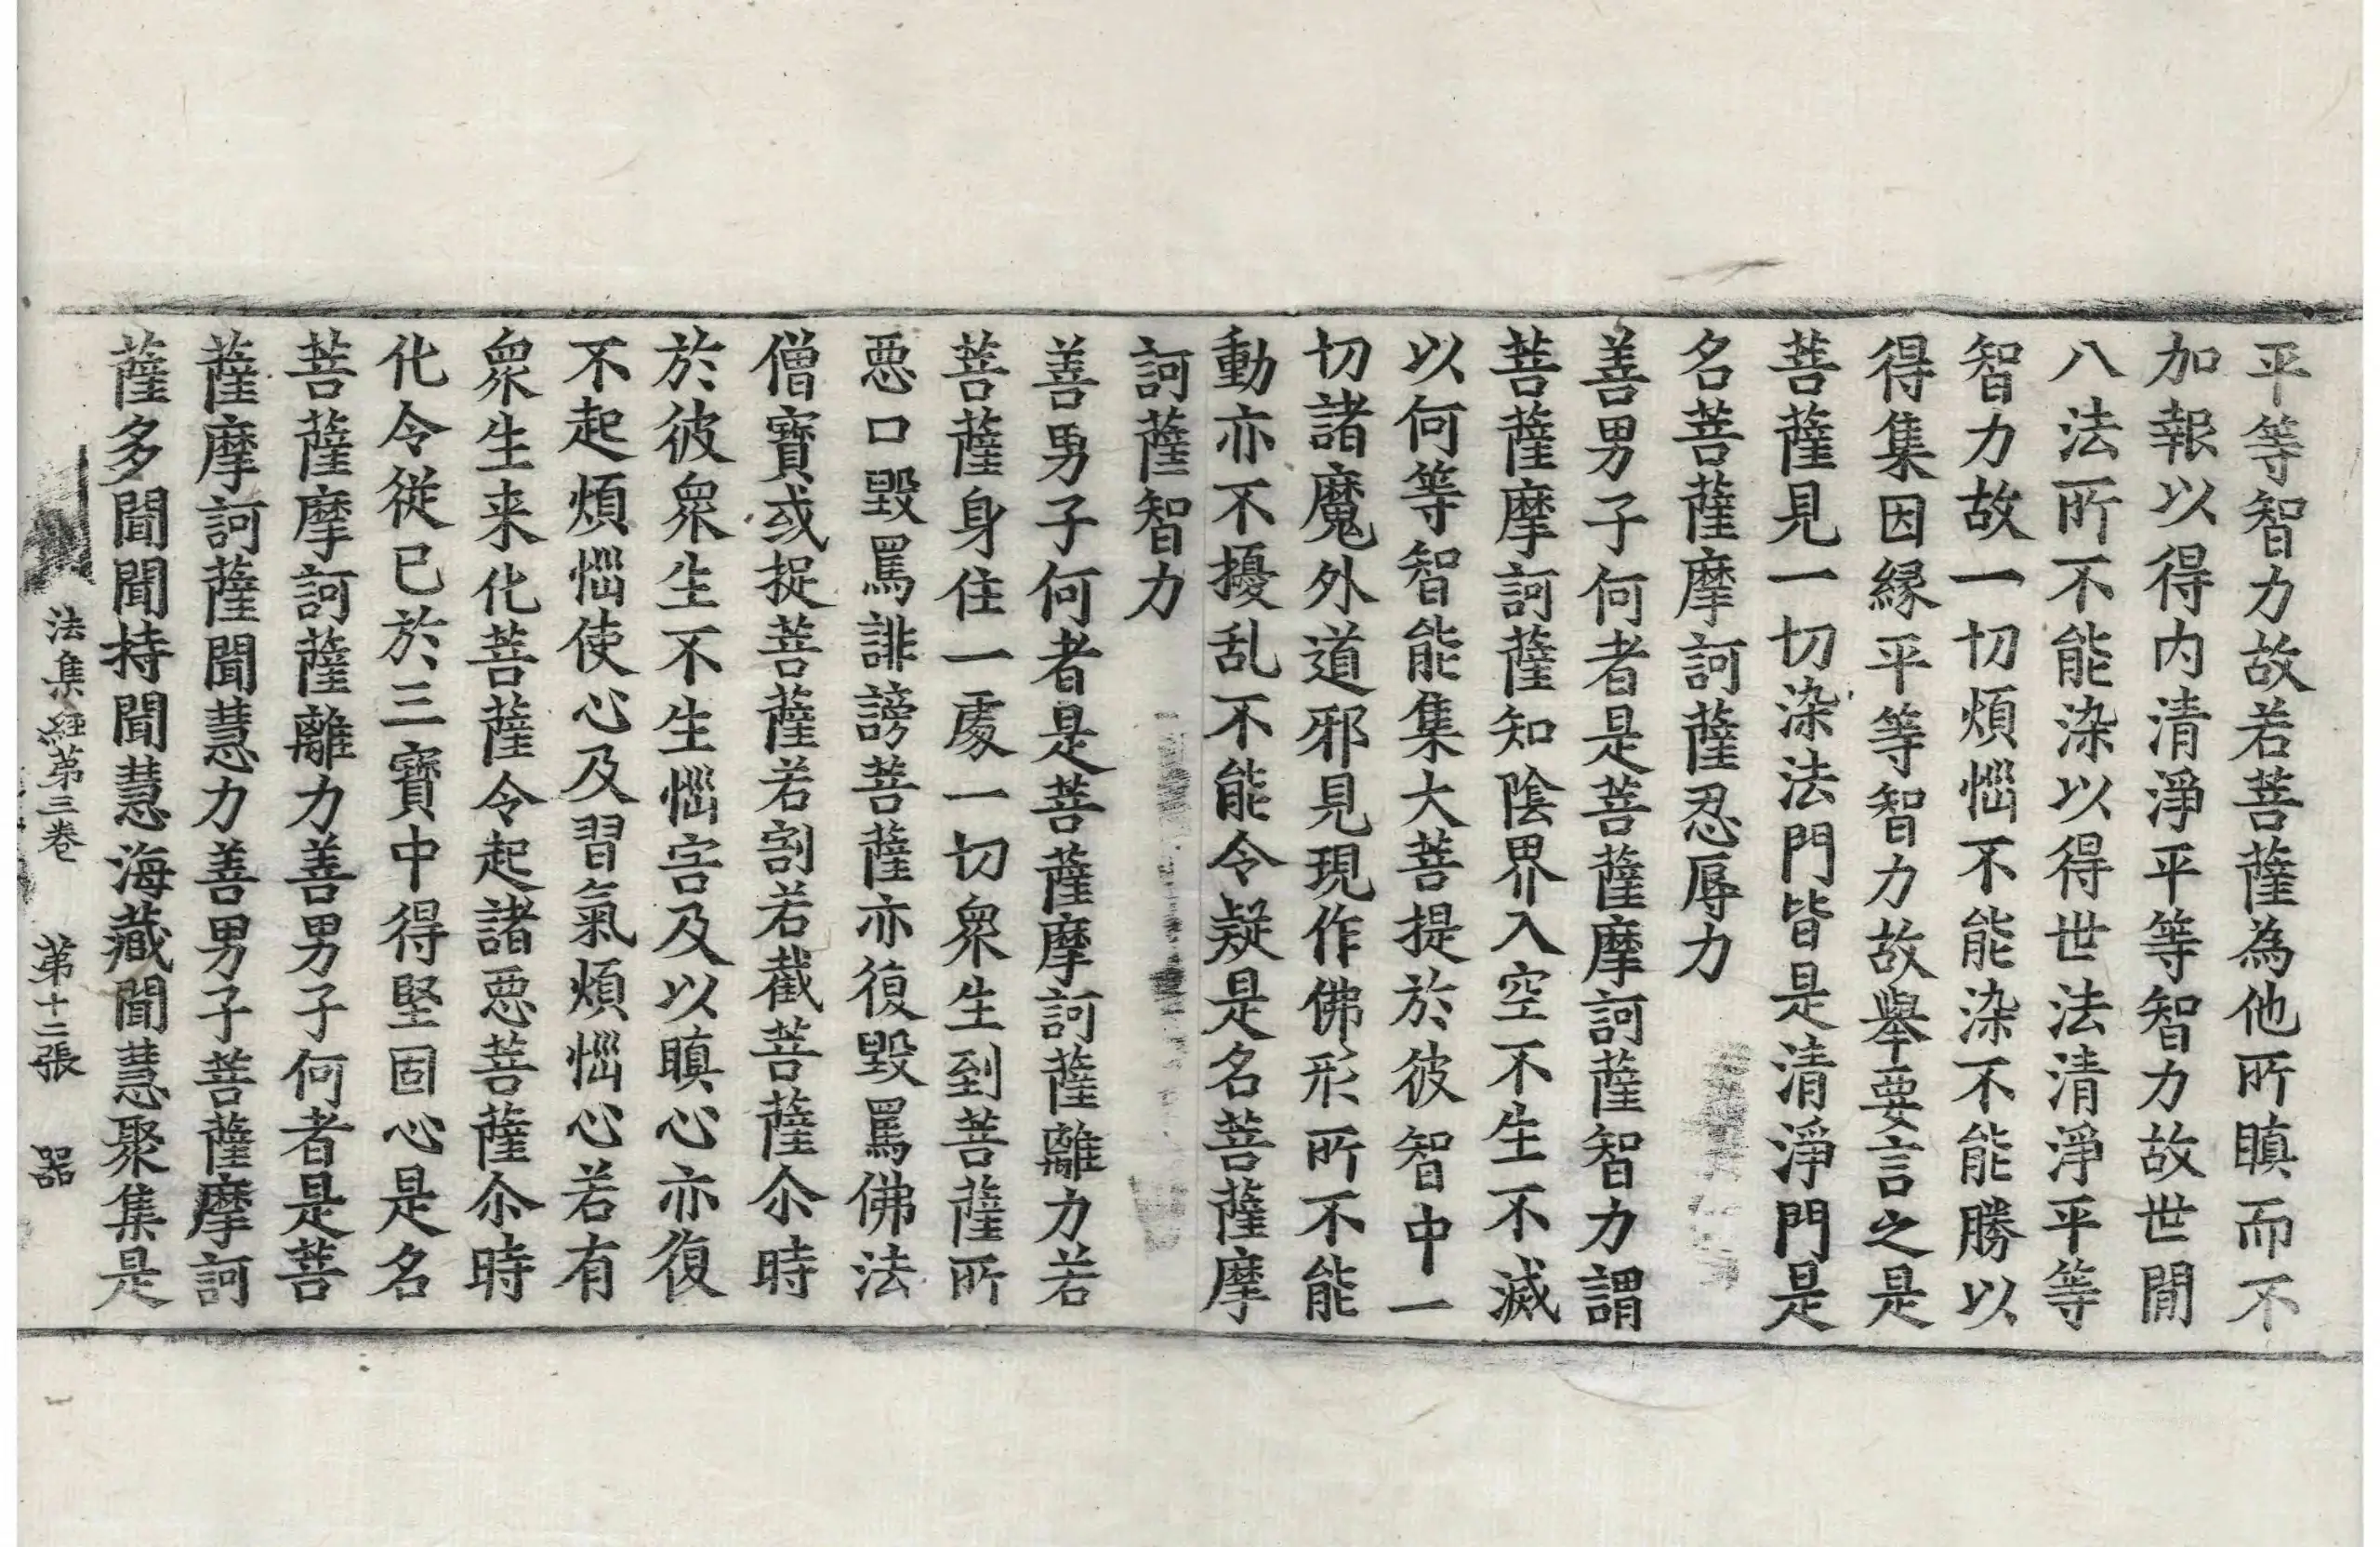 平等智力故若菩薩為他所瞋而不
加報以得内清淨平等智力故世間
八法所不能染以得世法清淨平等
智力故一切煩惱不能染不能勝以
得集因縁平等智力故舉要言之是
菩薩見一切染法門皆是清淨門是
名菩薩摩訶薩忍辱力
善男子何者是菩薩摩訶薩智力謂
菩薩摩訶薩知陰界入空不生不滅
以何等智能集大菩提於彼智中一
切諸魔外道邪見現作佛形所不能
動亦不擾乱不能令疑是名菩薩摩
訶薩智力
善男子何者是菩薩摩訶薩離力若
菩薩身住一處一切衆生到菩薩所
惡口毀罵誹謗菩薩亦復毀罵佛法
僧寶或捉菩薩若割若截菩薩尒時
於彼衆生不生惱害及以瞋心亦復
不起煩惱使心及習氣煩惱心若有
衆生来化菩薩令起諸惡菩薩尒時
化令從已於三寶中得堅固心是名
菩薩摩訶薩離力善男子何者是菩
薩摩訶薩聞慧力善男子菩薩摩訶
薩多聞聞持聞慧海藏聞慧聚集是
法集經第三卷 第十二張 器